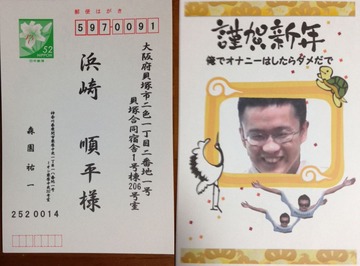 郵便はがき
52
NIPPON
5970091
大阪府貝塚市二色一丁目二番地一号
貝塚合同宿舎1号棟206号室
浜崎 順平様
森園 祐一
2520014
謹賀新年
俺でオナニーはしたらダメだで